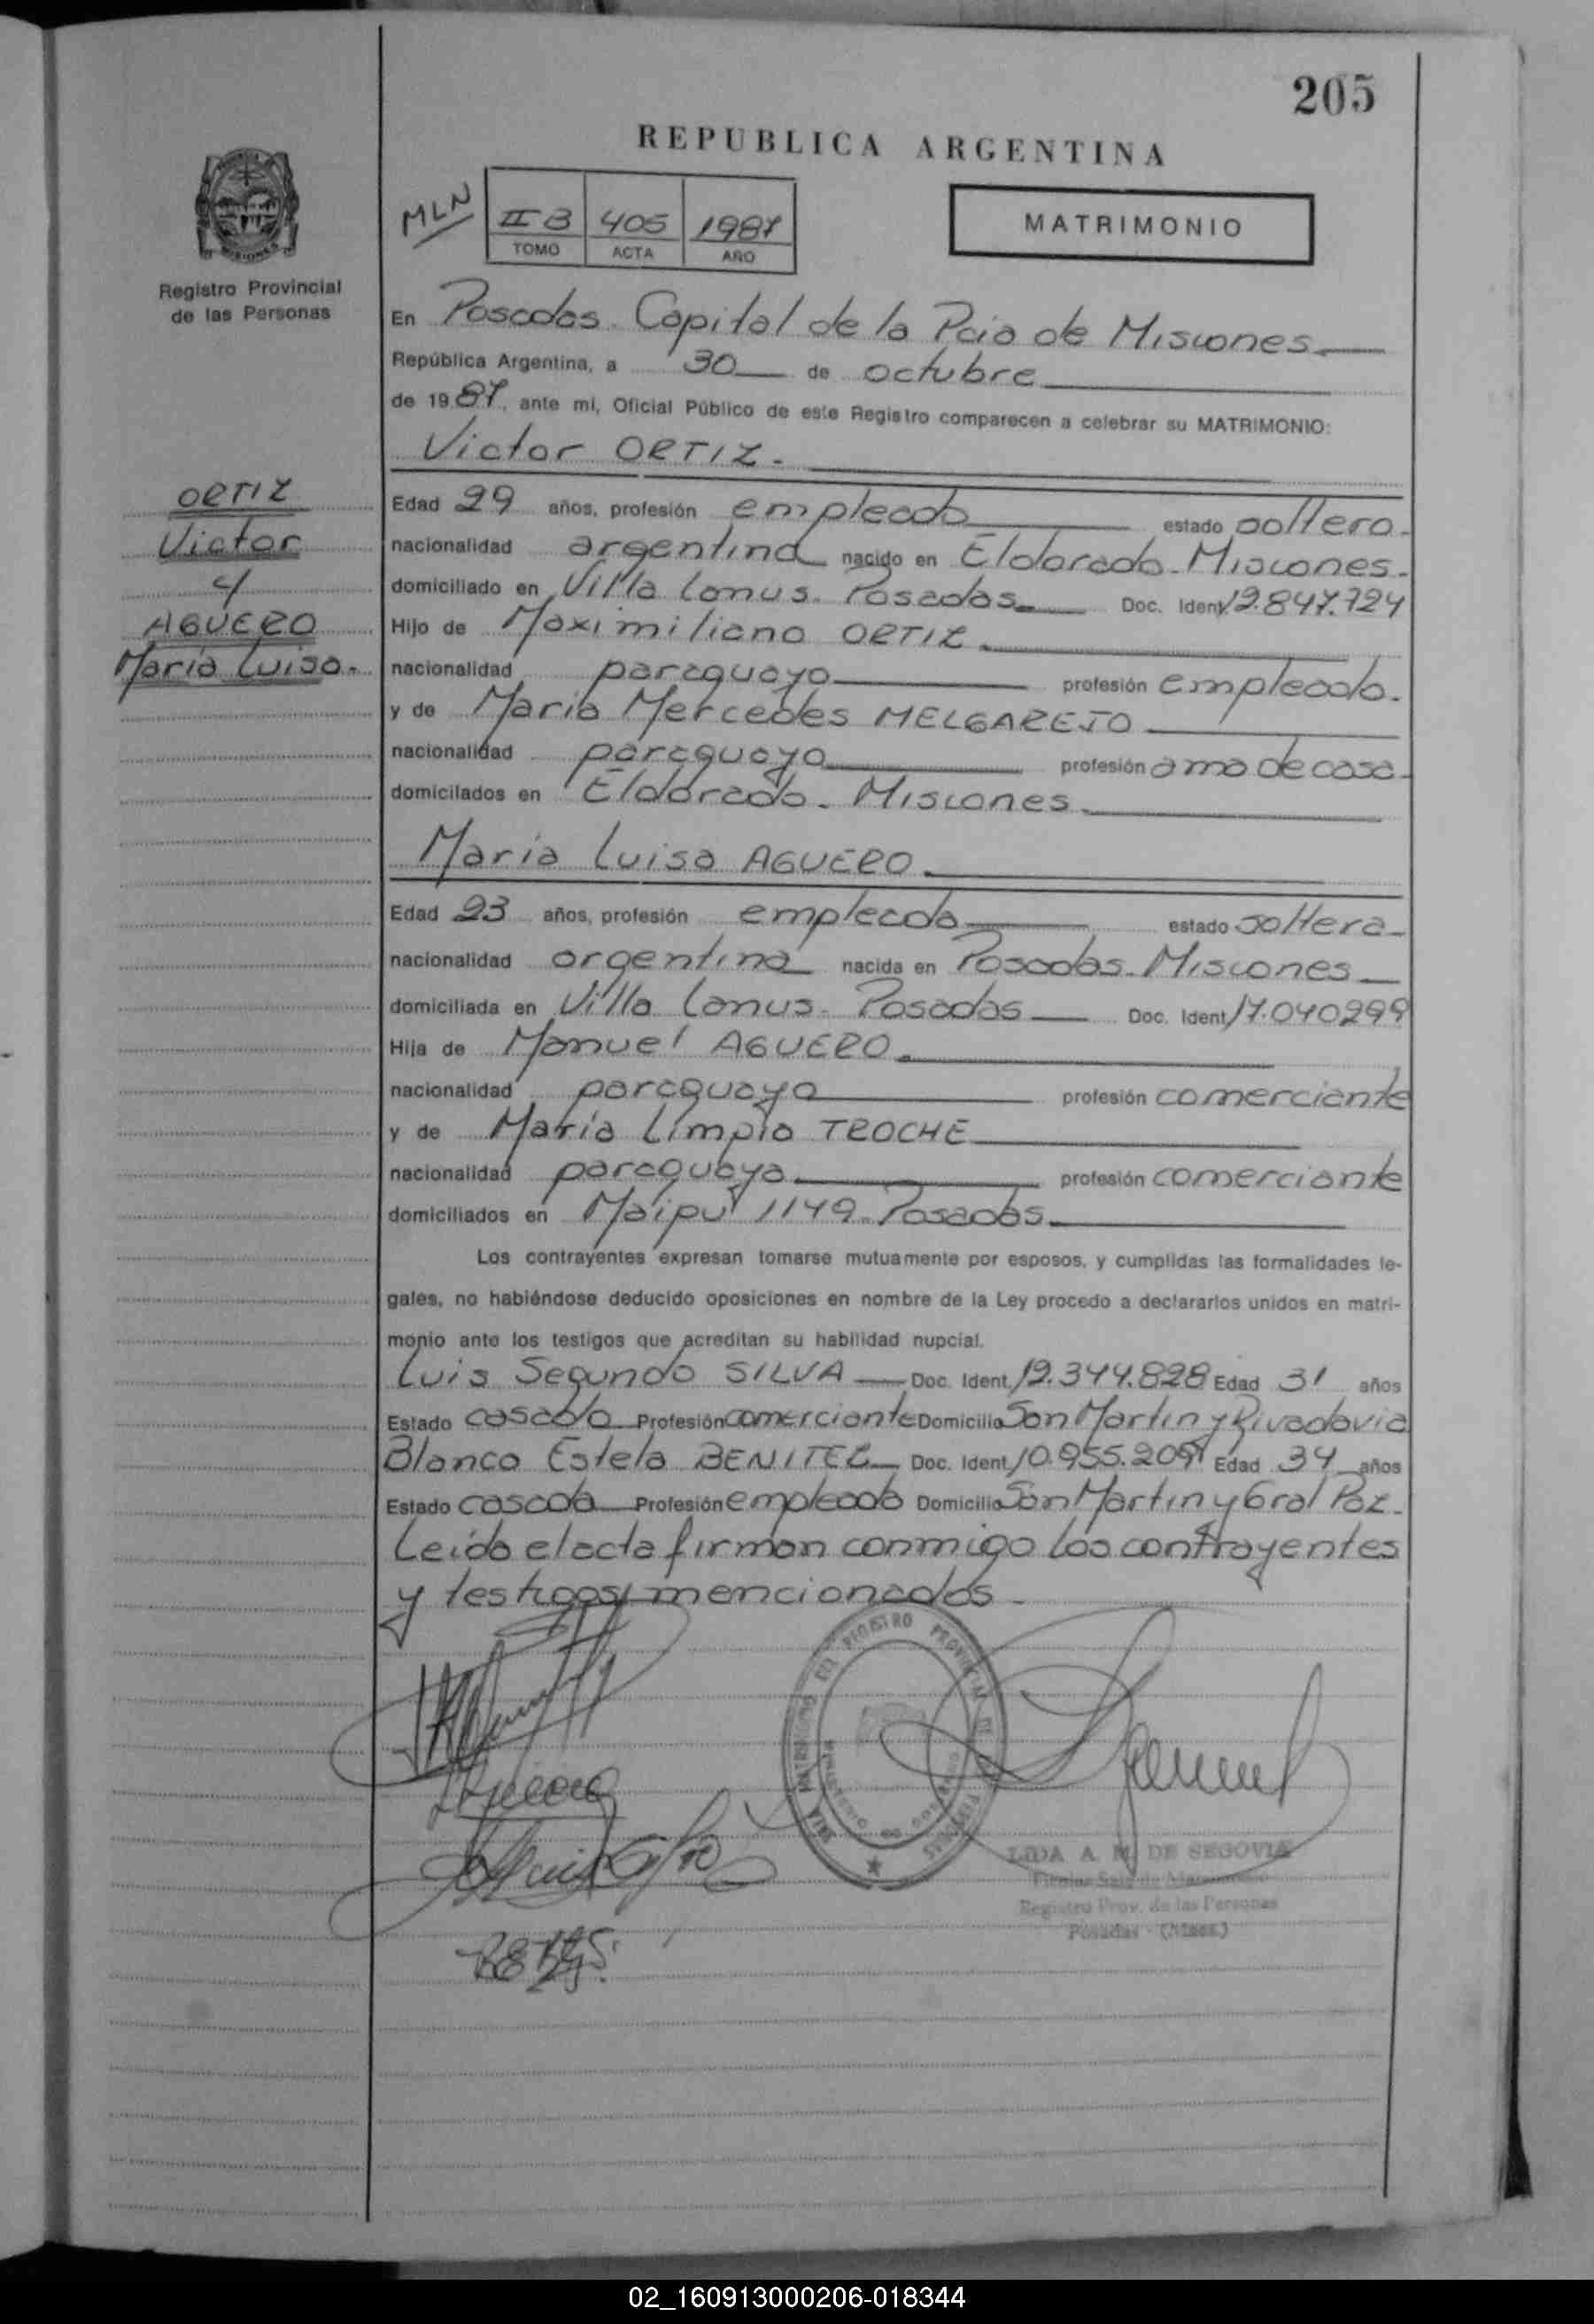 205
REPUBLICA ARGENTINA
MLN
II B 405 1987
TOMO ACTA AÑO
MATRIMONIO
Registro Provincial
de las Personas
En Posadas. Capital de la Pcia de Misiones
República Argentina, a 30 de octubre
de 1987, ante mi, Oficial Público de este Registro comparecen a celebrar su MATRIMONIO:
Victor ORTIZ.
ORTIZ
Victor
y
AGUERO
María Luisa.
Edad 29 años, profesión empleado estado soltero.
nacionalidad argentina nacido en Eldorado. Misiones.
domiciliado en Villa Lanus. Posadas Doc. Ident. 12.847.724
Hijo de Maximiliano ORTIZ.
nacionalidad paraguayo profesión empleado.
y de María Mercedes MELGAREJO
nacionalidad paraguaya profesión ama de casa
domicilados en Eldorado. Misiones.
María Luisa AGUERO.
Edad 23 años, profesión empleada estado soltera
nacionalidad argentina nacida en Posadas. Misiones
domiciliada en Villa Lanus. Posadas Doc. Ident. 17.040299
Hija de Manuel AGUERO.
nacionalidad paraguayo profesión comerciante
y de María Limpia TROCHE
nacionalidad paraguaya profesión comerciante
domiciliados en Maipú 1149. Posadas.
Los contrayentes expresan tomarse mutuamente por esposos, y cumplidas las formalidades le-
gales, no habiéndose deducido oposiciones en nombre de la Ley procedo a declararlos unidos en matri-
monio ante los testigos que acreditan su habilidad nupcial.
Luis Segundo SILVA Doc. Ident. 12.344.828 Edad 31 años
Estado casado Profesión comerciante Domicilio San Martin y Rivadavia
Blanca Estela BENITEZ Doc. Ident. 10.955.209 Edad 34 años
Estado casada Profesión empleada Domicilio San Martin y Gral Paz.
Leida el acta firman conmigo los contrayentes
y testigos mencionados.
REGISTRO PROVINCIAL DE LAS PERSONAS
LIDA A. M. DE SEGOVIA
Registro Prov. de las Personas
Posadas - (Mnes.)
02_160913000206-018344